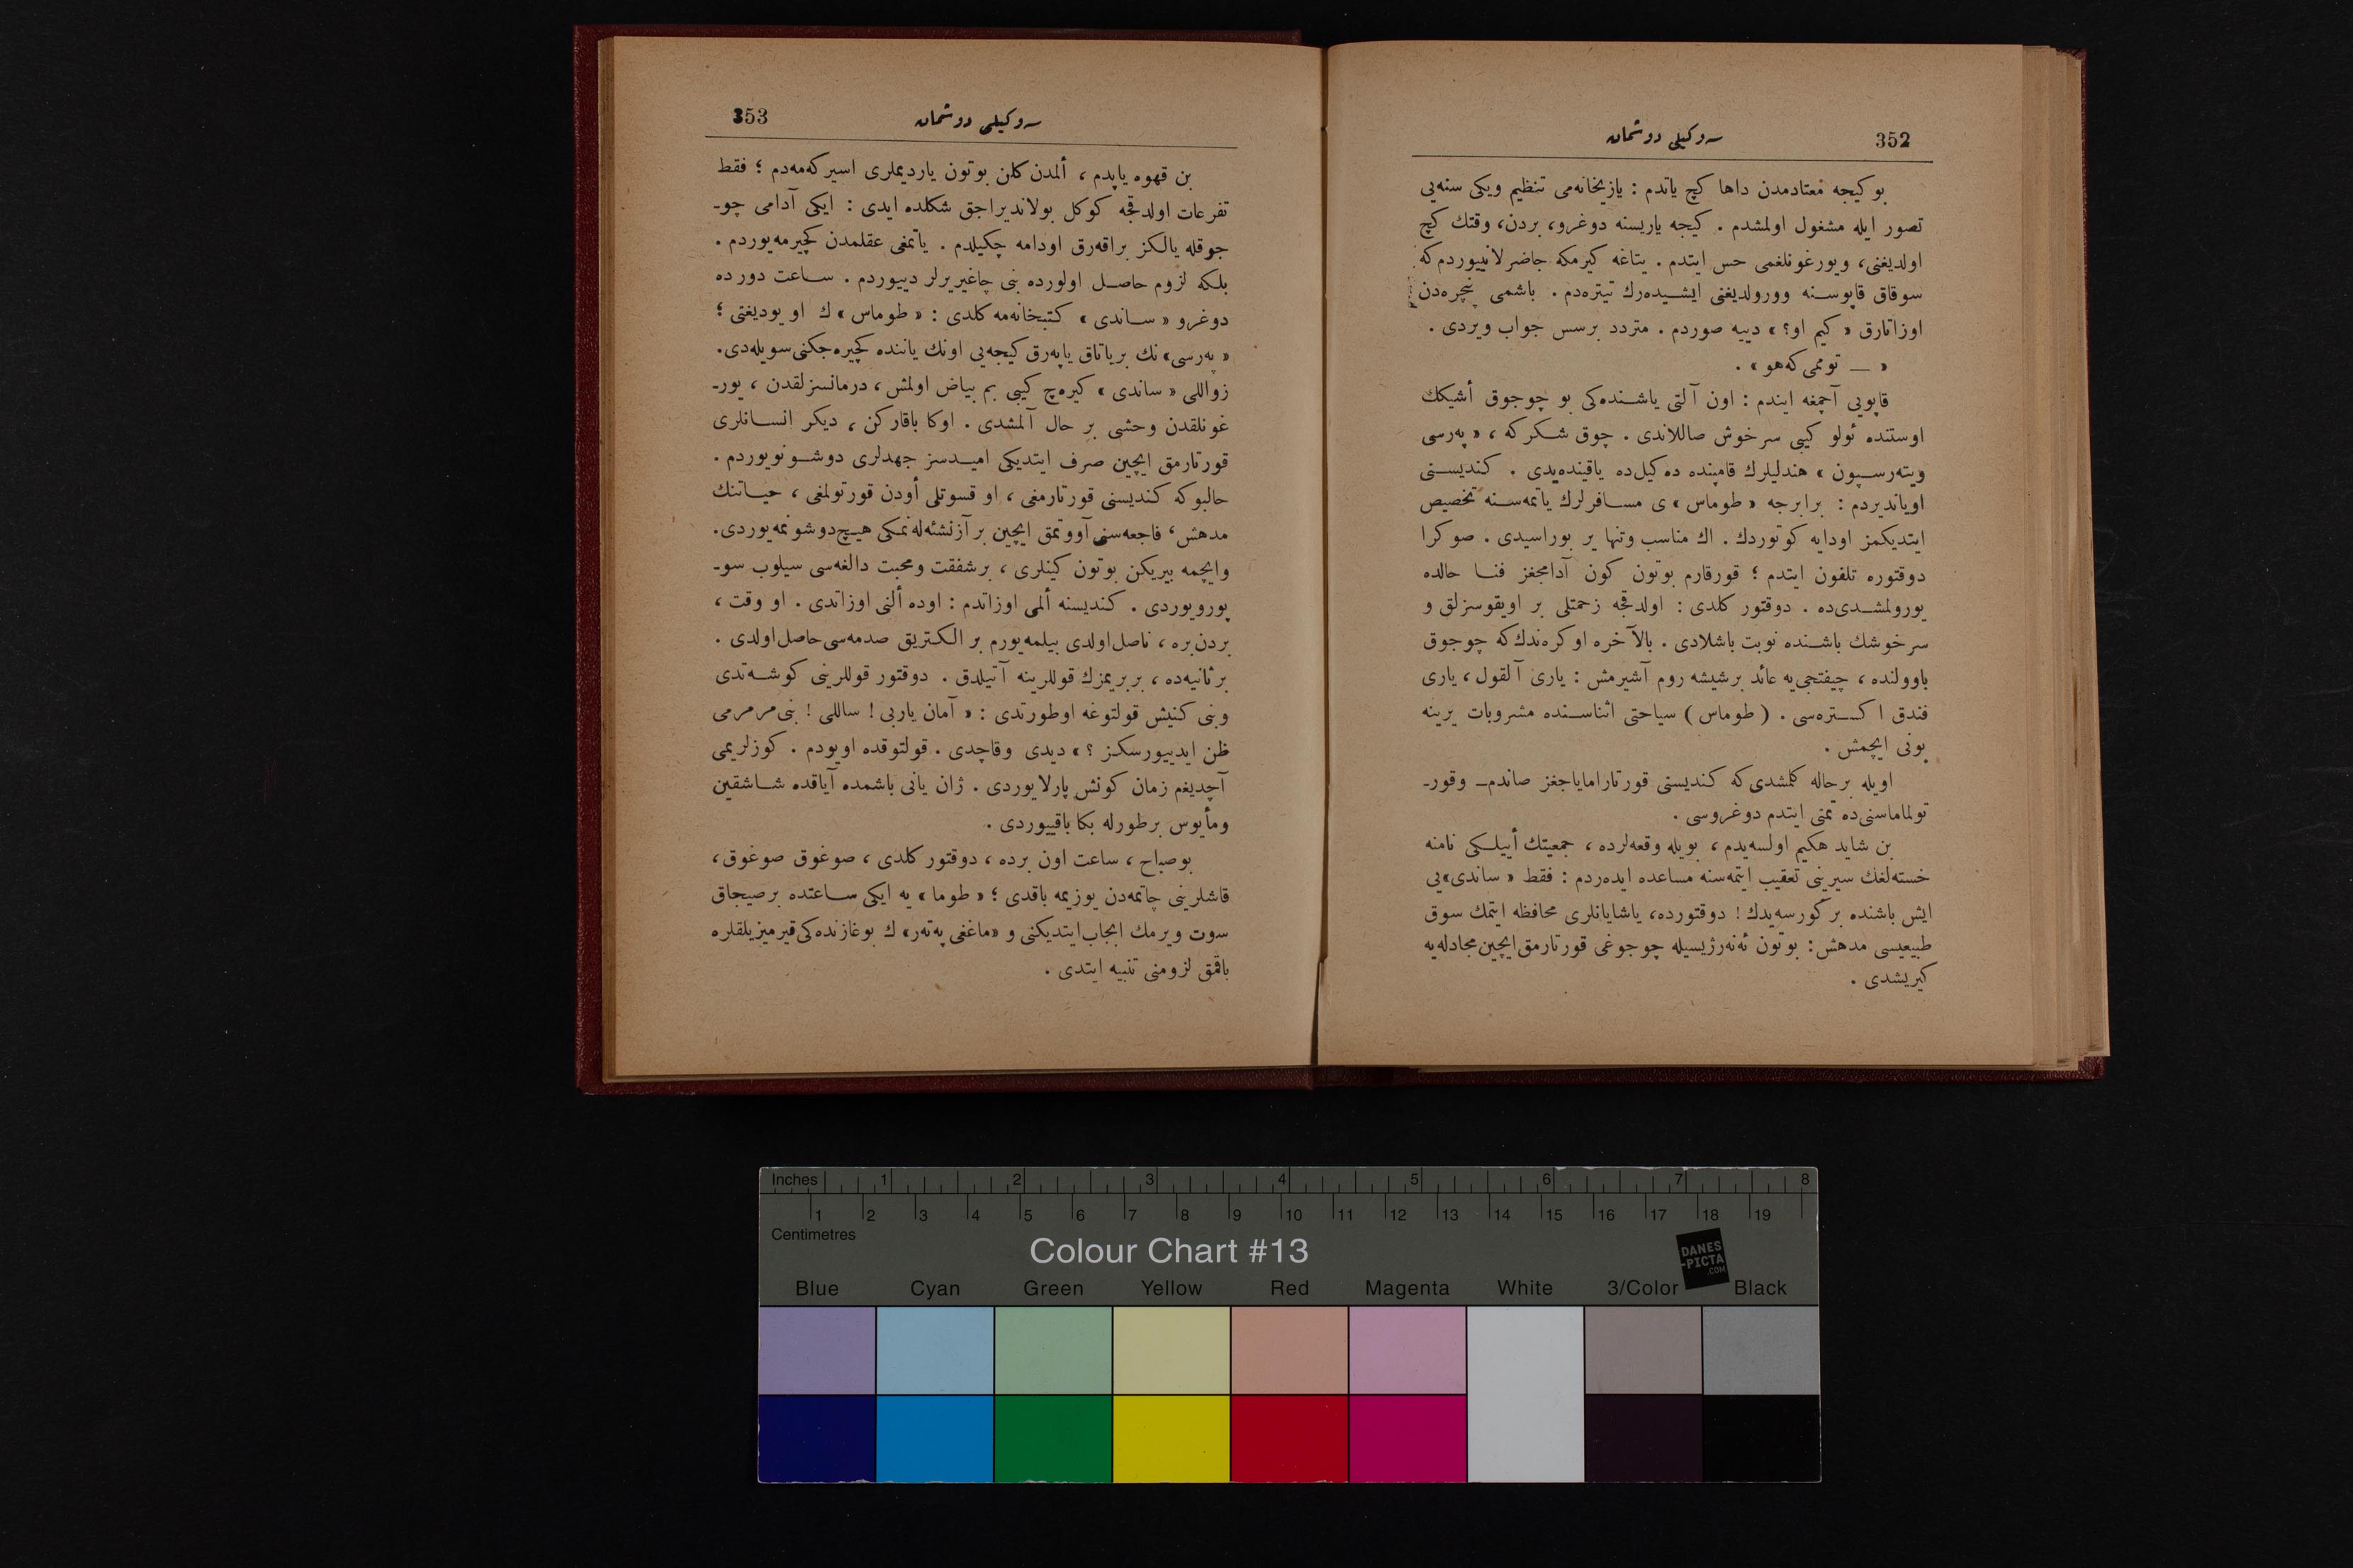 352
سه‌وكیلی دوشمان
بو كیجه معتادمدن داها كچ یاتدم : یازیخانه‌می تنظیم ویكی سنه‌یی
تصور ایله مشغول اولمشدم . كیجه یاریسنه دوغرو، بردن، وقتك كچ
اولدیغنی، ویورغونلغمی حس ایتدم . یتاغه كیرمكه حاضرلانیوردم كه
سوقاق قاپوسنه وورولدیغنی ایشیده‌رك تیتره‌دم . باشمی پنچره‌دن
اوزاتارق « كیم او؟ » دییه صوردم . متردد برسس جواب ویردی .
« — تومی كه‌هو » .
قاپویی آچمغه ایندم : اون آلتی یاشنده‌كی بو چوجوق أشیكك
اوستنده ئولو كیبی سرخوش صاللاندی . چوق شكركه ، « په‌رسی
ویته‌رسپون » هندلیلرك قامپنده ده‌كیل‌ده یاقینده‌یدی . كندیسنی
اویاندیردم : برابرجه « طوماس » ی مسافرلرك یاتمه‌سنه تخصیص
ایتدیكمز اودایه كوتوردك . اك مناسب وتنها یر بوراسیدی . صوكرا
دوقتوره تلفون ایتدم ؛ قورقارم بوتون كون آدامجغز فنا حالده
یورولمشدی‌ده . دوقتور كلدی : اولدقجه زحمتلی بر اویقوسزلق و
سرخوشك باشنده نوبت باشلادی . بالآخره اوكره‌ندك كه چوجوق
باوولنده ، چیفتجی‌یه عائد برشیشه روم آشیرمش : یاری آلقول ، یاری
فندق اكستره‌سی . ( طوماس ) سیاحتی اثناسنده مشروبات یرینه
بونی ایچمش .
اویله برحاله كلمشدی كه كندیسنی قورتارامایاجغز صاندم — وقور-
تولماماسنی ده تمنی ایتدم دوغروسی .
بن شاید هكیم اولسه‌یدم ، بویله وقعه‌لرده ، جمعیتك أییلكی نامنه
خسته‌لغك سیرینی تعقیب ایتمه‌سنه مساعده ایده‌ردم : فقط « ساندی»یی
ایش باشنده بر كورسه‌یدك ! دوقتورده، یاشایانلری محافظه ایتمك سوق
طبیعیسی مدهش : بوتون ئه‌نه‌رژیسیله چوجوغی قورتارمق ایچین مجادله‌یه
كیریشدی .
353
سه‌وكیلی دوشمان
بن قهوه یاپدم ، ألمدن كلن بوتون یاردیملری اسیركه‌مه‌دم ؛ فقط
تفرعات اولدقجه كوكل بولاندیراجق شكلده ایدی : ایكی آدامی چو-
جوقله یالكز براقه‌رق اودامه چكیلدم . یاتمغی عقلمدن كچیرمه‌یوردم .
بلكه لزوم حاصل اولورده بنی چاغیریرلر دییوردم . ساعت دورده
دوغرو « ساندی » كتبخانه‌مه كلدی : « طوماس » ك اویودیغنی ؛
« په‌رسی» نك بریاتاق یاپه‌رق كیجه‌یی اونك یاننده كچیره‌جكنی سویله‌دی.
زواللی « ساندی » كیره‌چ كیبی بم بیاض اولمش ، درمانسزلقدن ، یور-
غونلقدن وحشی بر حال آلمشدی . اوكا باقاركن ، دیكر انسانلری
قورتارمق ایچین صرف ایتدیكی امیدسز جهدلری دوشونویوردم .
حالبوكه كندیسنی قورتارمغی ، او قسوتلی أودن قورتولمغی ، حیاتنك
مدهش، فاجعه‌سنی آووتمق ایچین بر آز نشئه‌له‌نمكی هیچ دوشونمه‌یوردی.
وایچمه بیریكن بوتون كینلری ، برشفقت ومحبت دالغه‌سی سیلوب سو-
پورویوردی . كندیسنه ألمی اوزاتدم : اوده ألنی اوزاتدی . او وقت ،
بردن بره ، ناصل اولدی بیلمه‌یورم بر الكتریق صدمه‌سی حاصل اولدی .
برثانیه‌ده ، بربریمزك قوللرینه آتیلدق . دوقتور قوللرینی كوشه‌تدی
وبنی كنیش قولتوغه اوطورتدی : « آمان یاربی ! ساللی ! بنی مرمرمی
ظن ایدییورسكز ؟ » دیدی وقاچدی . قولتوقده اویودم . كوزلریمی
آچدیغم زمان كونش پارلایوردی . ژان یانی باشمده آیاقده شاشقین
ومأیوس برطورله بكا باقییوردی .
بوصباح ، ساعت اون برده ، دوقتور كلدی ، صوغوق صوغوق ،
قاشلرینی چاتمه‌دن یوزیمه باقدی ؛ « طوما » یه ایكی ساعتده برصیجاق
سوت ویرمك ایجاب ایتدیكنی و «ماغغی په‌ته‌ر» ك بوغازنده كی قیرمیزیلقلره
باقمق لزومنی تنبیه ایتدی .
Inches 1 2 3 4 5 6 7 8
1 2 3 4 5 6 7 8 9 10 11 12 13 14 15 16 17 18 19
Centimetres
Colour Chart #13
DANES
-PICTA
.COM
Blue Cyan Green Yellow Red Magenta White 3/Color Black